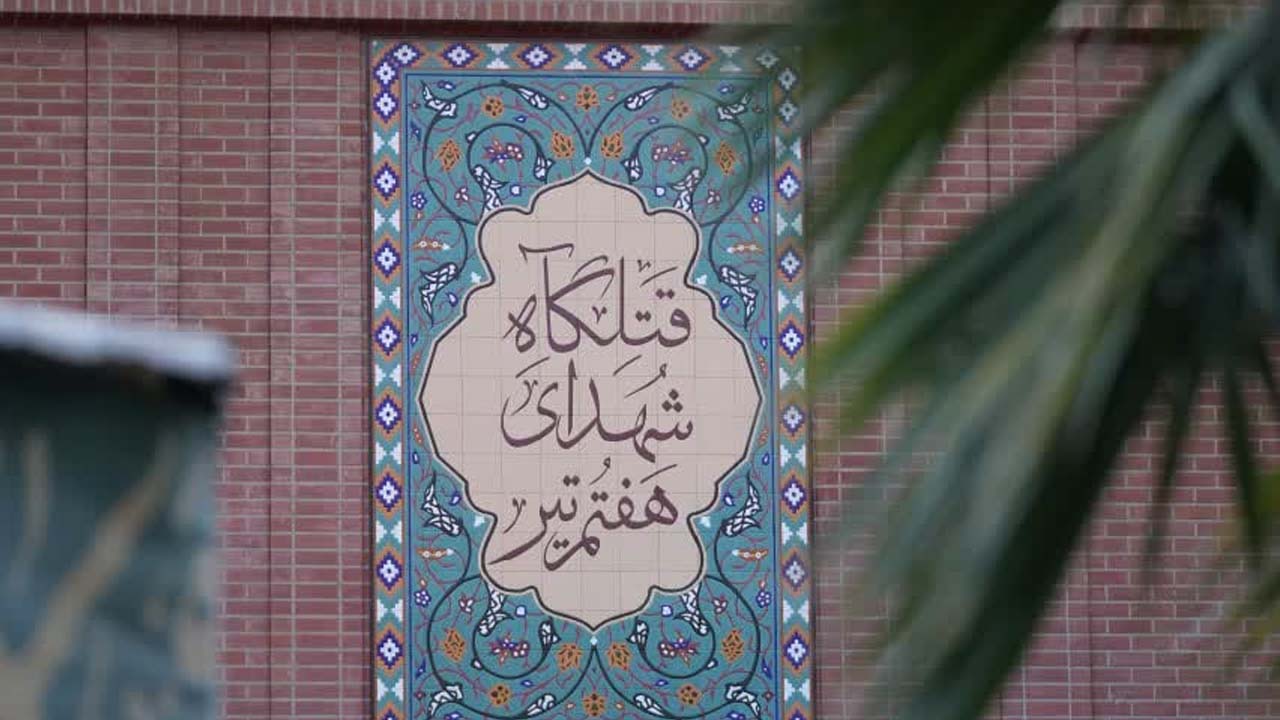 قتلگاه
شهدای
هفتم تیر